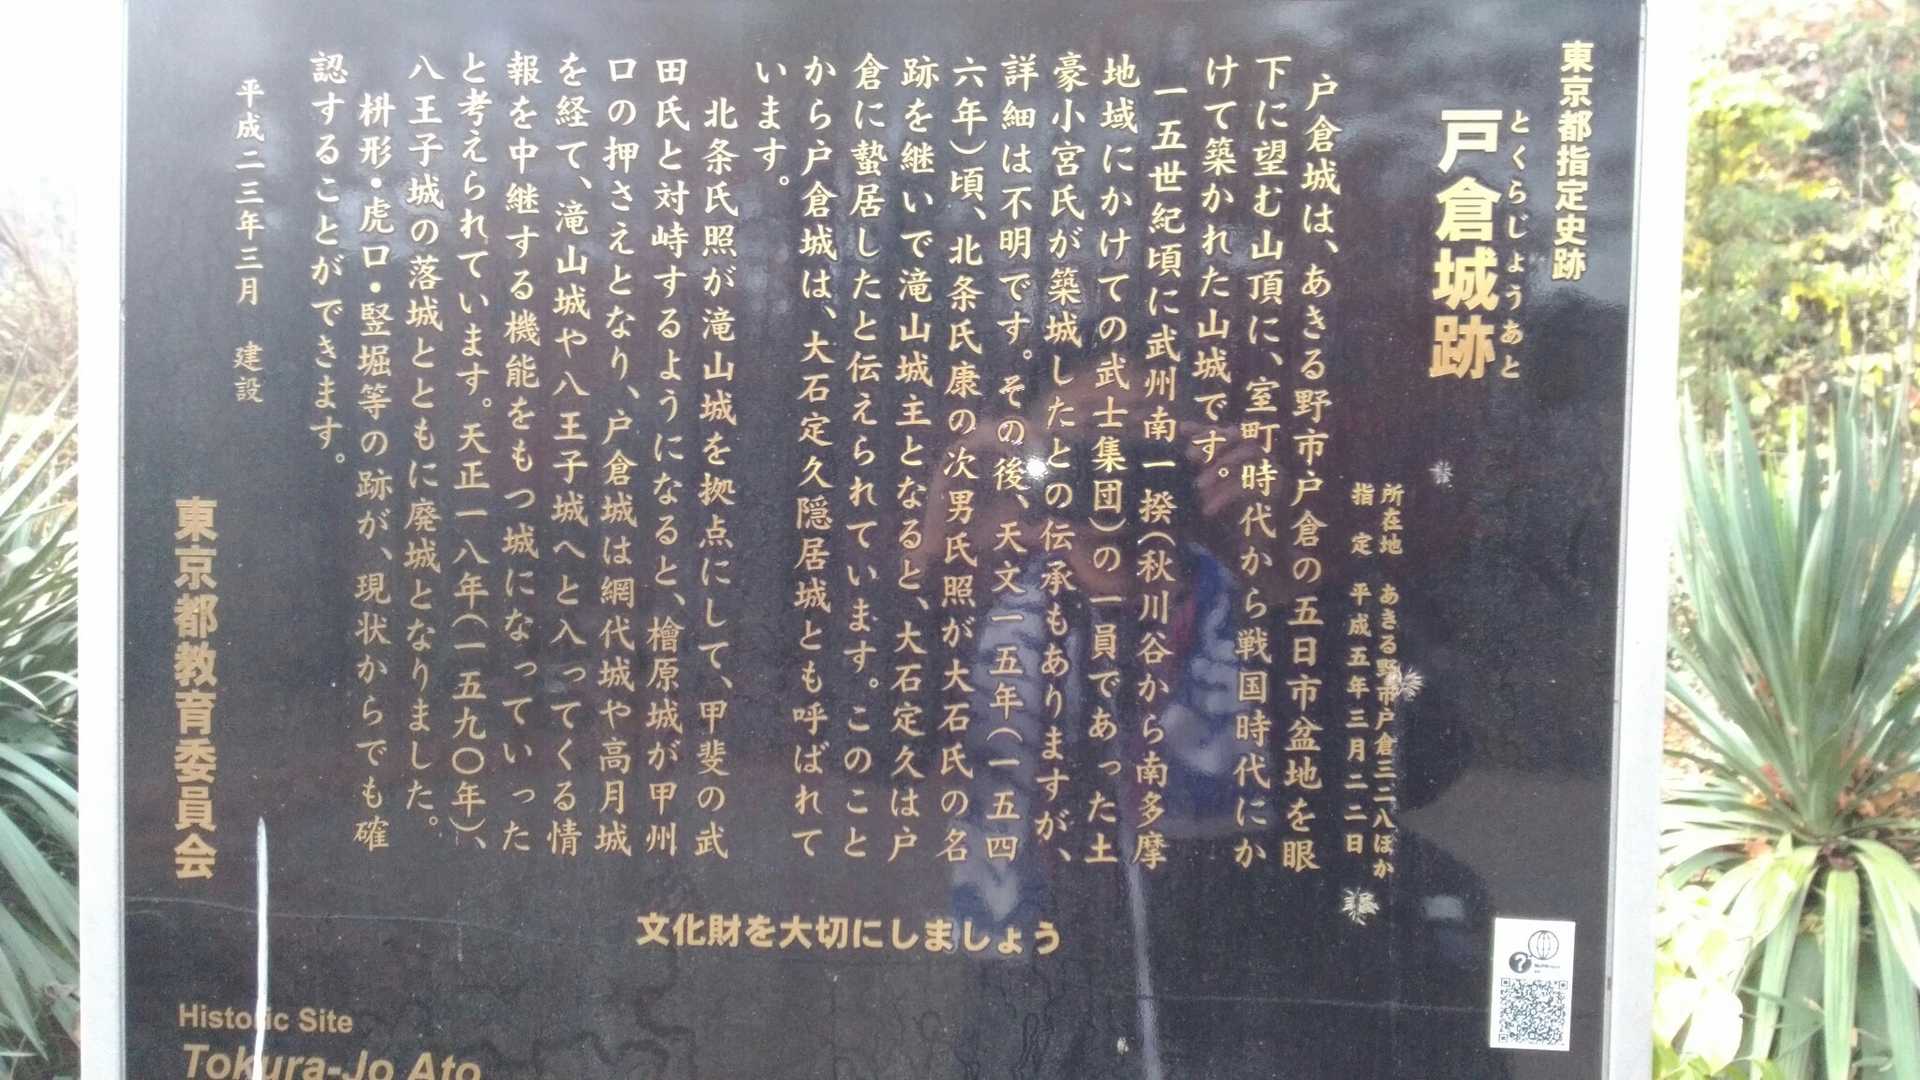 東京都指定史跡
とくらじょうあと
戸倉城跡
所在地　あきる野市戸倉三二八ほか
指　定　平成五年三月二二日
戸倉城は、あきる野市戸倉の五日市盆地を眼
下に望む山頂に、室町時代から戦国時代にか
けて築かれた山城です。
一五世紀頃に武州南一揆（秋川谷から南多摩
地域にかけての武士集団）の一員であった土
豪小宮氏が築城したとの伝承もありますが、
詳細は不明です。その後、天文一五年（一五四
六年）頃、北条氏康の次男氏照が大石氏の名
跡を継いで滝山城主となると、大石定久は戸
倉に蟄居したと伝えられています。このこと
から戸倉城は、大石定久隠居城とも呼ばれて
います。
北条氏照が滝山城を拠点にして、甲斐の武
田氏と対峙するようになると、檜原城が甲州
口の押さえとなり、戸倉城は網代城や高月城
を経て、滝山城や八王子城へと入ってくる情
報を中継する機能をもつ城になっていった
と考えられています。天正一八年（一五九〇年）、
八王子城の落城とともに廃城となりました。
枡形・虎口・竪堀等の跡が、現状からでも確
認することができます。
平成二三年三月　建設
東京都教育委員会
文化財を大切にしましょう
Historic Site
Tokura-Jo Ato